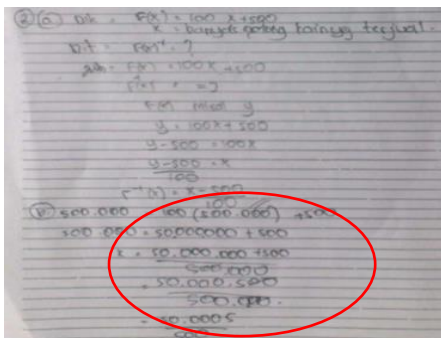 ② ⓐ Dik = F(x) = 100 x + 500
x = banyak potong kain yg terjual.
Dit = F(x)⁻¹ = ?
F(x) = 100x + 500
F(x) misal y
y = 100x + 500
y - 500 = 100x
y - 500 / 100 = x
F⁻¹(x) = x - 500 / 100
ⓑ 500.000 100 (500.000) + 500
500.000 = 50.000000 + 500
x = 50.000.000 + 500 / 500.000
= 50.000.500 / 500.000.
= 50.0005 / 500